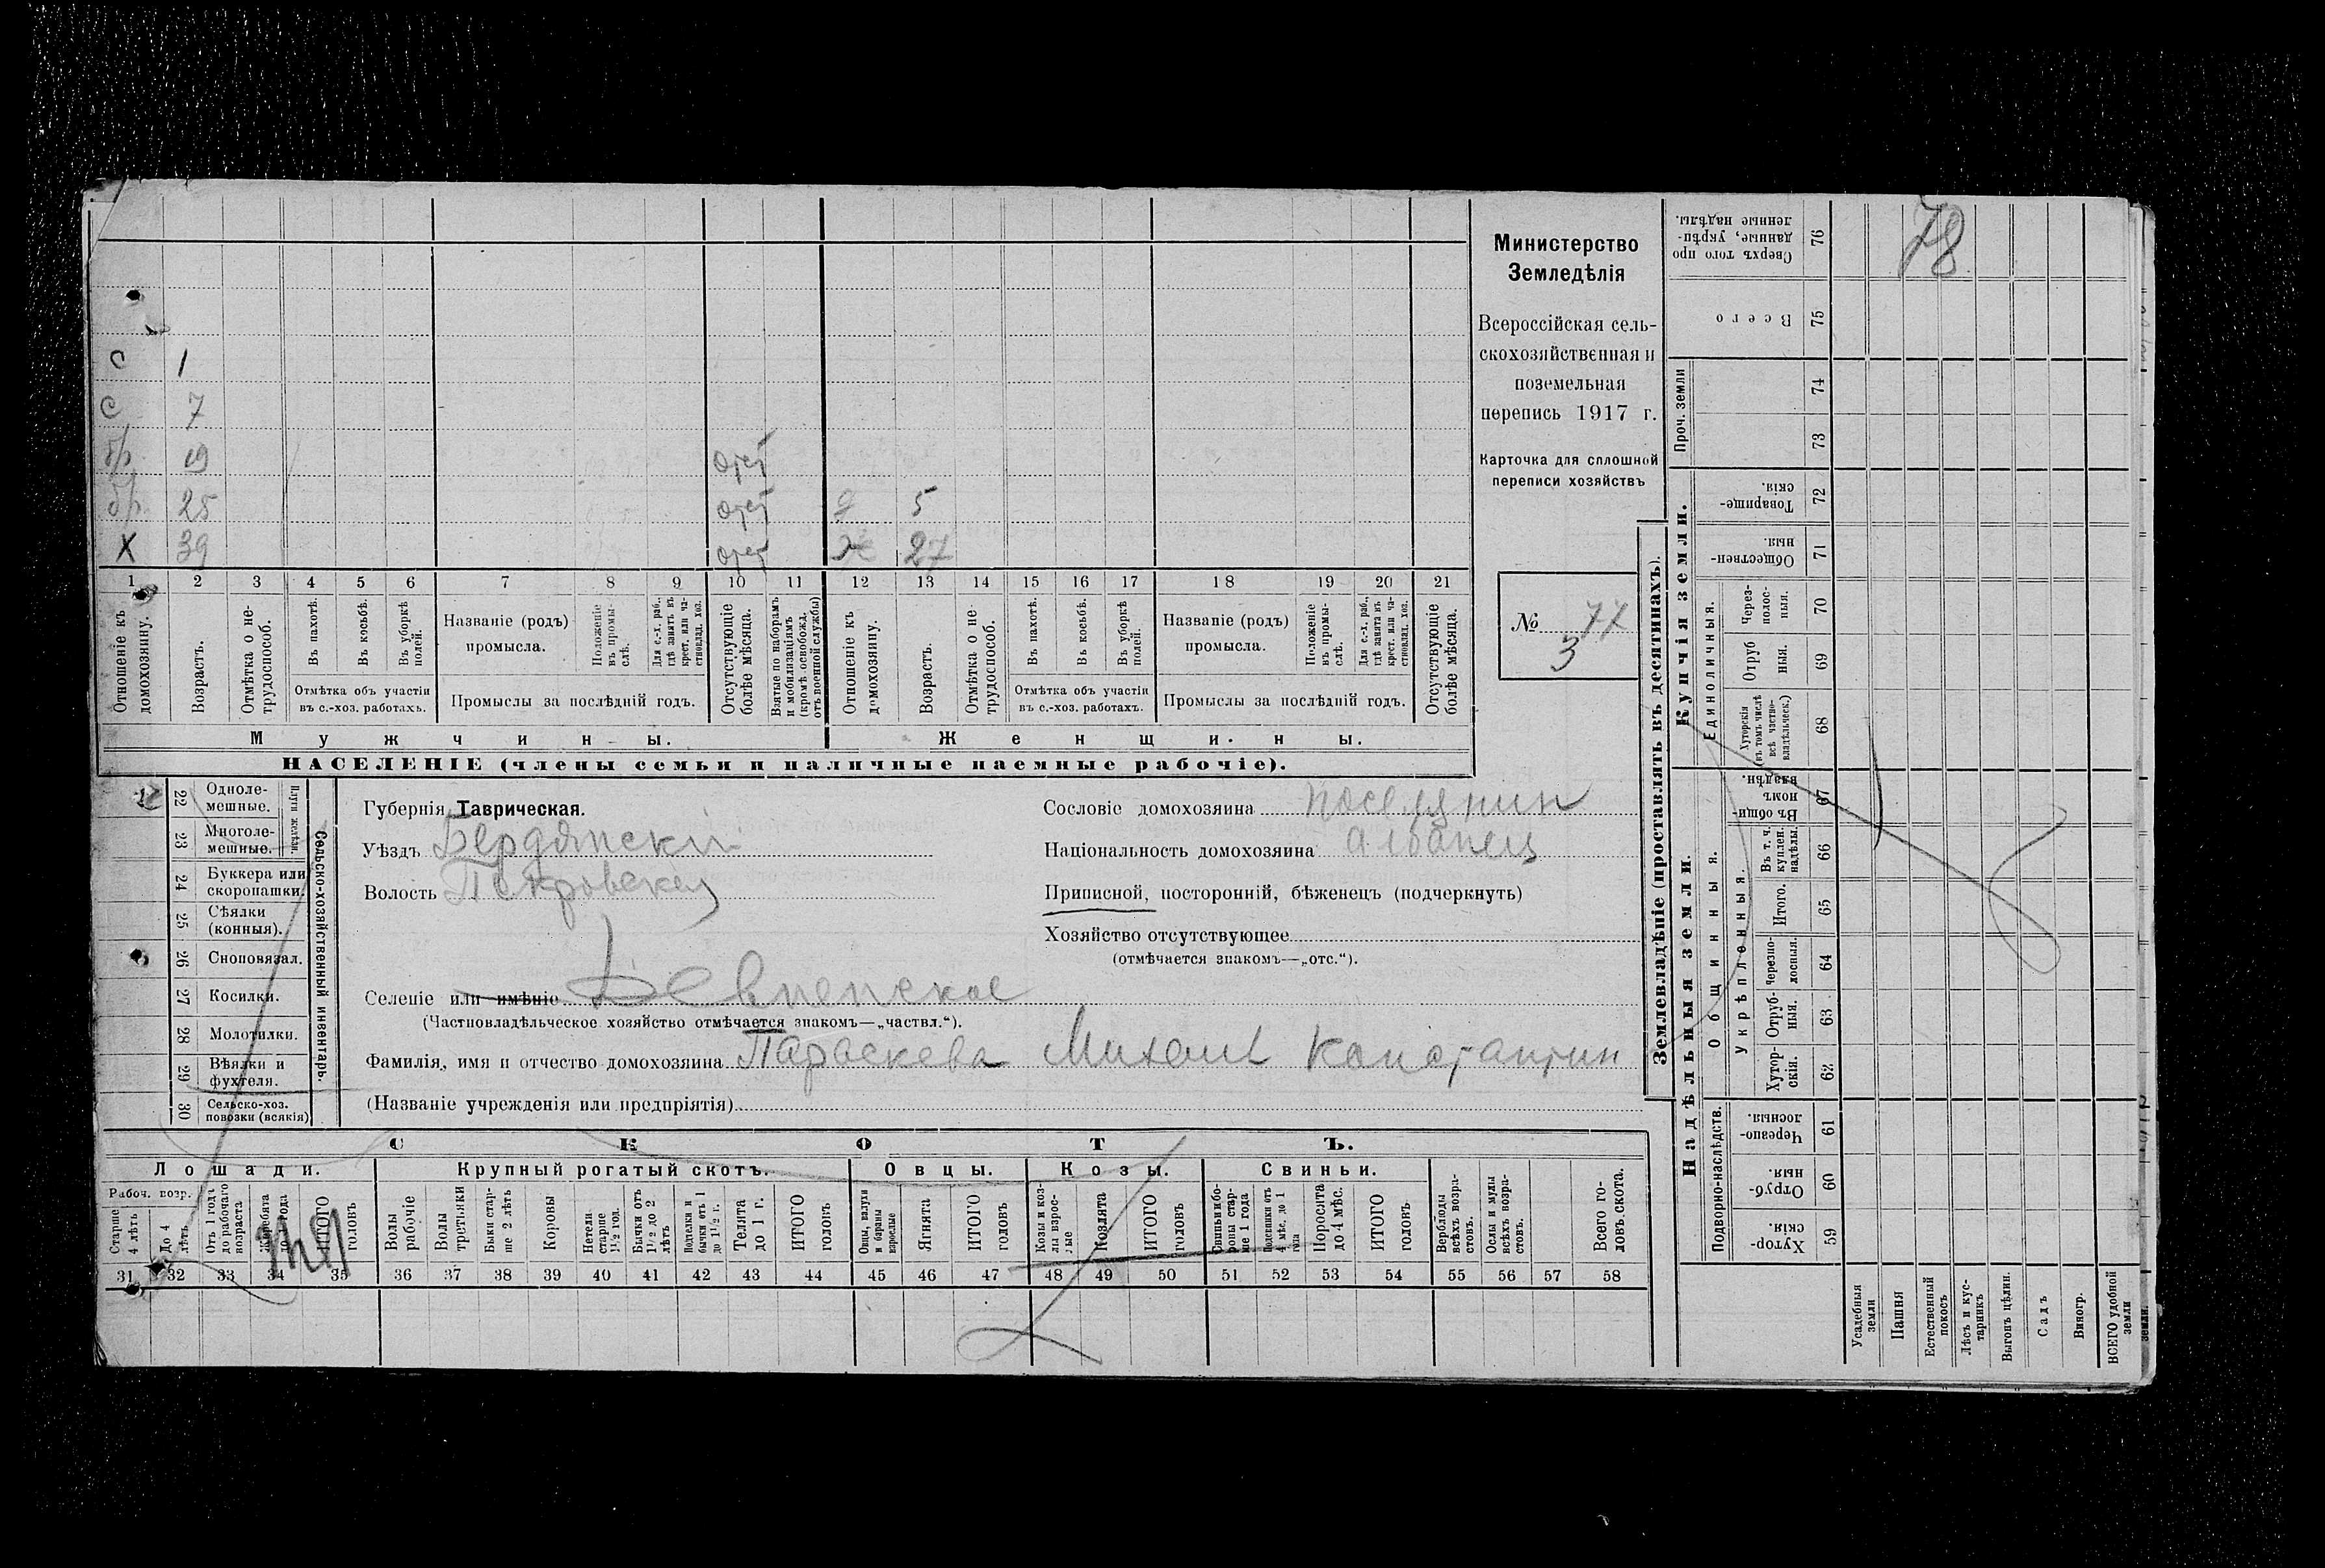 78
С 1
С 7
бр 19 отст
бр 25 отст 5
Х 39 отст ж 27
1 2 3 4 5 6 7 8 9 10 11 12 13 14 15 16 17 18 19 20 21
Отношеніе къ домохозяину.
Возрастъ.
Отмѣтка о нетрудоспособ.
Въ пахотѣ.
Въ косьбѣ.
Въ уборкѣ полей.
Отмѣтка объ участіи въ с.-хоз. работахъ.
Названіе (родъ) промысла.
Положеніе въ промыслѣ.
Для с.-х. раб., гдѣ занятъ въ крест. или частновлад. хоз.
Промыслы за послѣдній годъ.
Отсутствующіе болѣе мѣсяца.
Взятые по наборамъ и мобилизаціямъ (кромѣ освобожд. отъ военной службы)
Отношеніе къ домохозяину.
Возрастъ.
Отмѣтка о нетрудоспособ.
Въ пахотѣ.
Въ косьбѣ.
Въ уборкѣ полей.
Отмѣтка объ участіи въ с.-хоз. работахъ.
Названіе (родъ) промысла.
Положеніе въ промыслѣ.
Для с.-х. раб., гдѣ занята въ крест. или частновлад. хоз.
Промыслы за послѣдній годъ.
Отсутствующіе болѣе мѣсяца.
Мужчины. Женщины.
НАСЕЛЕНІЕ (члены семьи и наличные наемные рабочіе).
Министерство
Земледѣлія
Всероссійская сель-
скохозяйственная и
поземельная
перепись 1917 г.
Карточка для сплошной
переписи хозяйствъ
№ 77
3
Плуги желѣзн.
22 Одноле-
мешные.
23 Многоле-
мешные.
24 Буккера или
скоропашки.
25 Сѣялки
(конныя).
26 Сноповязал.
27 Косилки.
28 Молотилки.
29 Вѣялки и
фухтеля.
30 Сельско-хоз.
повозки (всякія)
Сельско-хозяйственный инвентарь.
Губернія Таврическая.
Уѣздъ Бердянскій
Волость Покровская
Сословіе домохозяина поселянин
Національность домохозяина албанец
Приписной, посторонній, бѣженецъ (подчеркнуть)
Хозяйство отсутствующее
(отмѣчается знакомъ—„отс.“).
Селеніе или имѣніе Девненское
(Частновладѣльческое хозяйство отмѣчается знакомъ—„частвл.“).
Фамилія, имя и отчество домохозяина Параскева Михаил Константин
(Названіе учрежденія или предпріятія)
СКОТЪ.
Лошади. Крупный рогатый скотъ. Овцы. Козы. Свиньи.
Рабоч. возр.
Старше 4 лѣтъ
До 4 лѣтъ
Отъ 1 года до рабочаго возраста
Жеребята до 1 года
ИТОГО головъ
Волы рабочіе
Волы третьяки
Быки старше 2 лѣтъ
Коровы
Нетели старше 1½ год.
Бычки отъ 1½ до 2 лѣтъ
Подтелки и бычки отъ 1 до 1½ г.
Телята до 1 г.
ИТОГО головъ
Овцы, валухи и бараны взрослые
Ягнята
ИТОГО головъ
Козы и козлы взрослые
Козлята
ИТОГО головъ
Свиньи боровы старше 1 года
Подсвинки отъ 4 мѣс. до 1 года
Поросята до 4 мѣс.
ИТОГО головъ
Верблюды всѣхъ возрастовъ.
Ослы и мулы всѣхъ возрастовъ.
Всего головъ скота.
31 32 33 34 35 36 37 38 39 40 41 42 43 44 45 46 47 48 49 50 51 52 53 54 55 56 57 58
Землевладѣніе (проставлять въ десятинахъ).
Купчія земли.
Надѣльныя земли.
Сверхъ того проданные, укрѣпленные надѣлы. 76
Всего 75
Проч. земли 74
73
Товарищескія. 72
Общественныя. 71
Единоличныя.
Черезполосныя. 70
Отрубныя. 69
Хуторскія (въ томъ числѣ всѣ частновладѣльческ.) 68
Общинныя.
Въ общинномъ владѣн. 67
Укрѣпленныя.
Въ т. ч. куплен. надѣлы. 66
Итого. 65
Черезполосныя. 64
Отрубныя. 63
Хуторскія. 62
Подворно-наслѣдств.
Черезполосныя. 61
Отрубныя. 60
Хуторскія. 59
Усадебныя земли
Пашня
Естественный покосъ
Лѣсъ и кустарникъ
Выгонъ цѣлин.
Садъ
Виногр.
ВСЕГО удобной земли